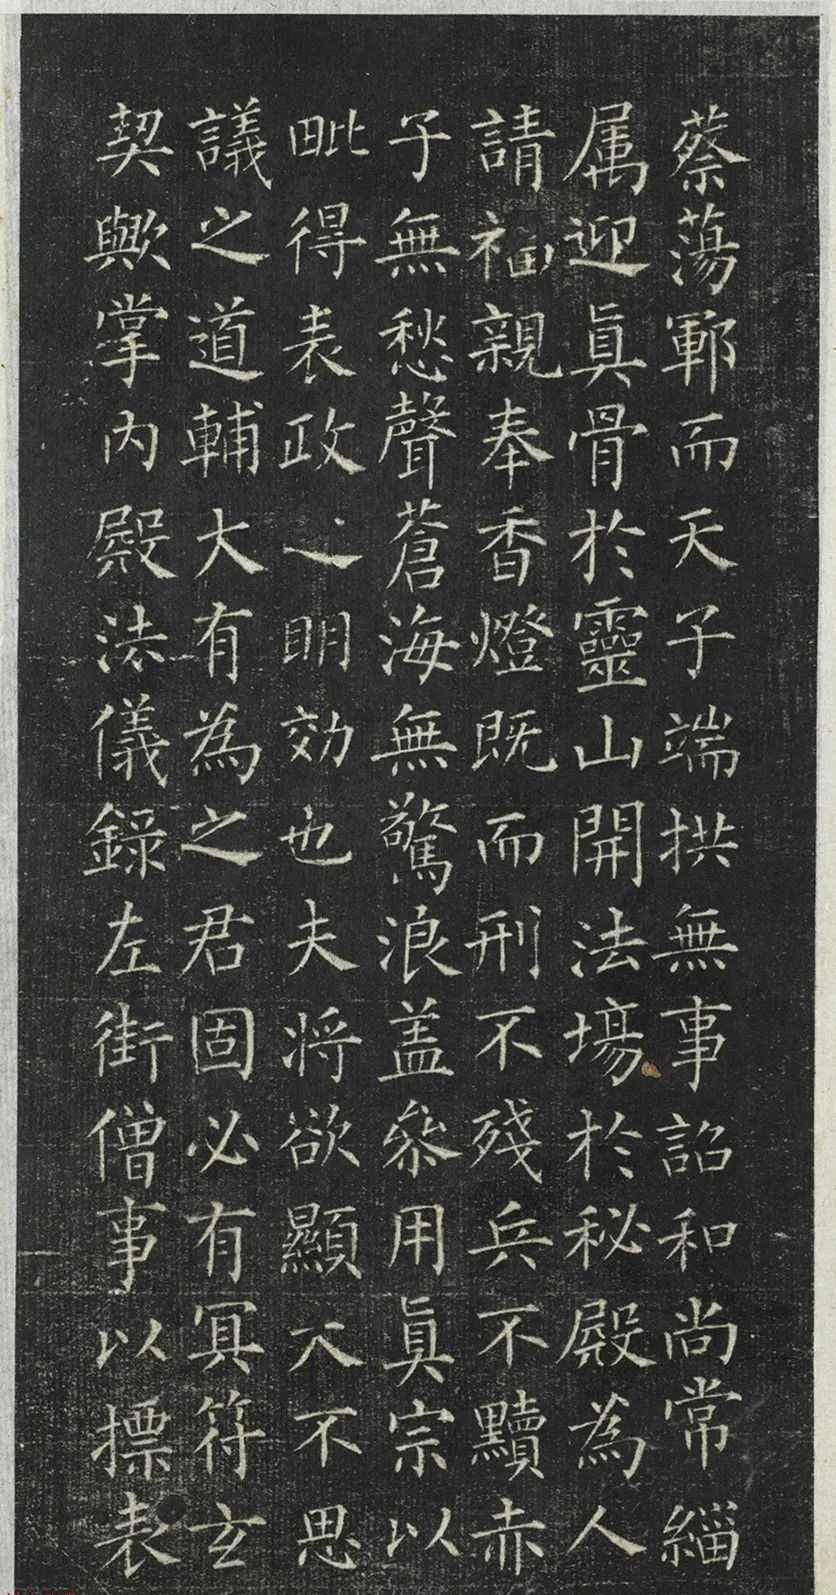 蔡蕩鄆而天子端拱無事詔和尚常緇
属迎眞骨於靈山開法塲於秘殿為人
請福親奉香燈既而刑不殘兵不黷赤
子無愁聲蒼海無驚浪盖叅用眞宗以
毗得表政之明効也夫将欲顯大不思
議之道輔大有為之君固必有冥符玄
契歟掌内殿法儀錄左街僧事以摽表